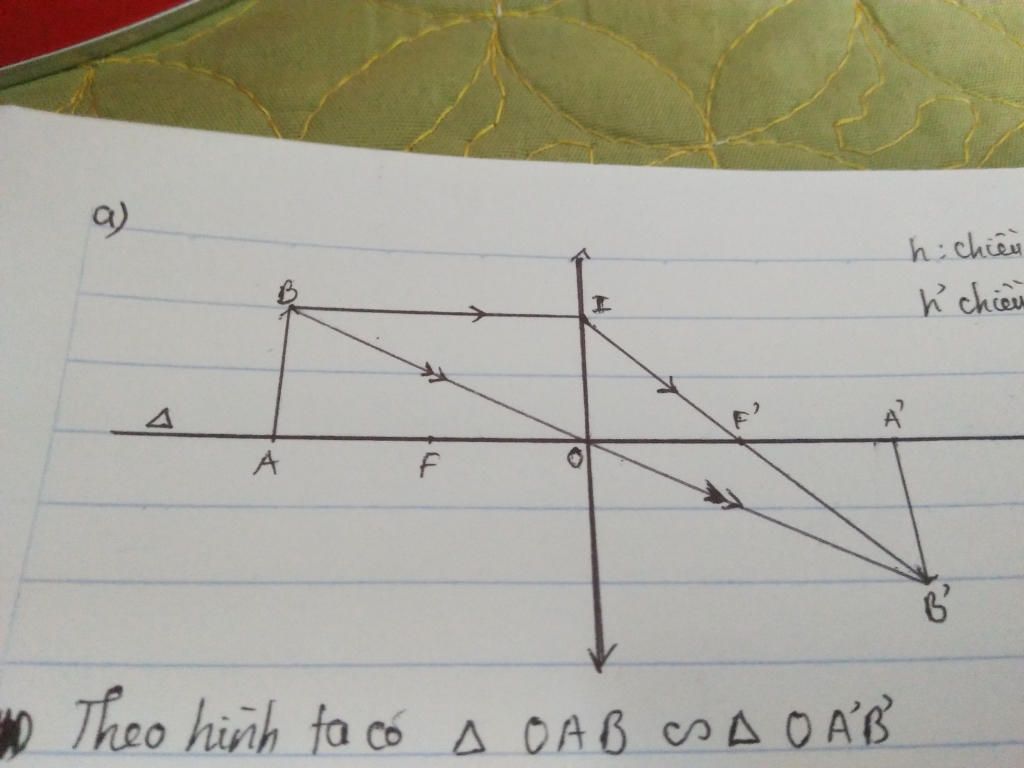 a)
h: chiều
h' chiều
B
I
Δ
F'
A'
A
F
O
B'
Theo hình ta có Δ OAB ∽ Δ OA'B'